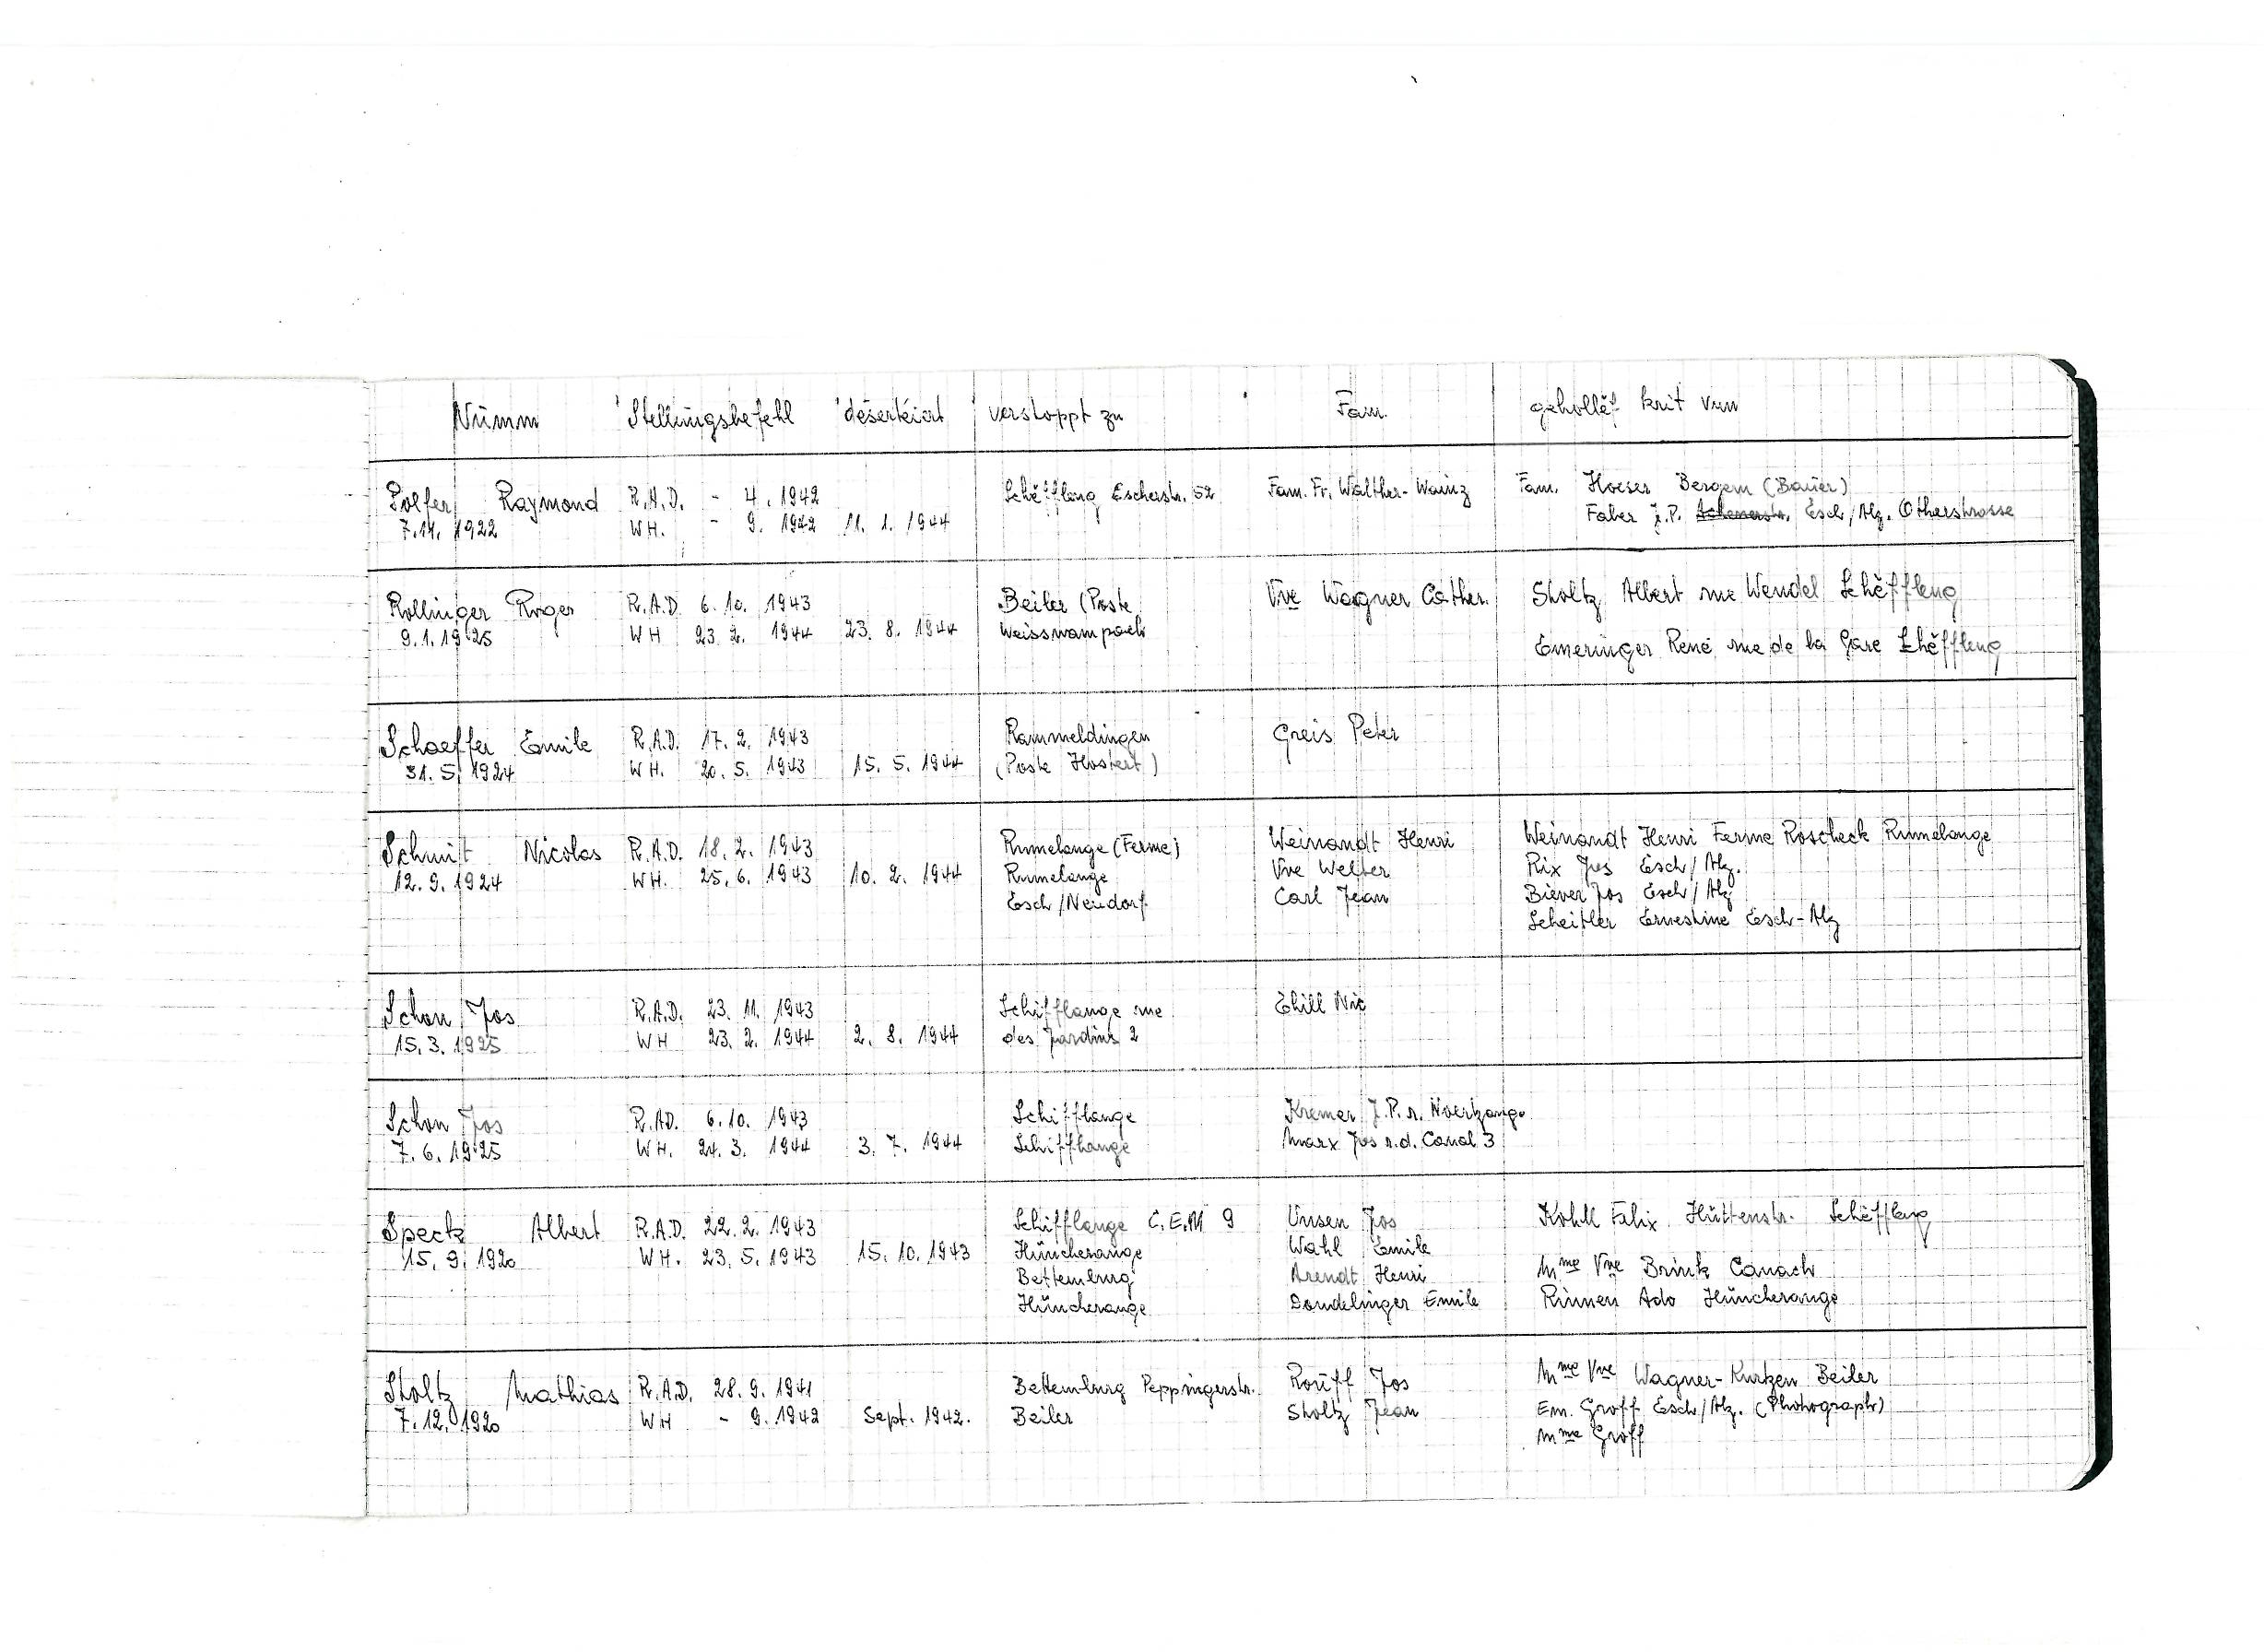 Numm Stellungsbefehl desertéiert verstoppt zu Fam. gehollëf krit vun
Polfer Raymond R.A.D. - 4. 1942 Schëffleng Escherstr. 52 Fam. Fr. Walther-Wainz Fam. Hoeser Bergem (Bauer)
7.11. 1922 WH. - 9. 1942 11. 1. 1944 Faber J.P. Esch/Alz. Otherstrosse
Rollinger Roger R.A.D. 6. 10. 1943 Beiler (Poste Vve Wagner Cather. Stoltz Albert rue Wendel Schëffleng
9.1.1925 WH 23. 2. 1944 23. 8. 1944 Weisswampach
Emeringer René rue de la Gare Schëffleng
Schaeffer Emile R.A.D. 17. 2. 1943 Rammeldingen Greis Peter
31. 5. 1924 WH. 20. 5. 1943 15. 5. 1944 (Poste Hostert)
Schmit Nicolas R.A.D. 18. 2. 1943 Rumelange (Ferme) Weinandt Henri Weinandt Henri Ferme Roscheck Rumelange
12. 9. 1924 WH. 25. 6. 1943 10. 2. 1944 Rumelange Vve Welter Rix Jos Esch/Alz.
Esch/Neudorf Carl Jean Biever Jos Esch/Alz
Scheitler Ernestine Esch-Alz
Schon Jos R.A.D. 23. 11. 1943 Schifflange rue Thill Nic
15. 3. 1925 WH 23. 2. 1944 2. 8. 1944 des Jardins 2
Schon Jos R.A.D. 6. 10. 1943 Schifflange Kremer J.P. r. Noertzange
7. 6. 1925 WH. 24. 3. 1944 3. 7. 1944 Schifflange Marx Jos r.d. Canal 3
Speck Albert R.A.D. 22. 2. 1943 Schifflange C.E.M 9 Unsen Jos Kohll Felix Hüttenstr. Schëffleng
15. 9. 1920 WH. 23. 5. 1943 15. 10. 1943 Hüncherange Wahl Emile
Bettemburg Arendt Henri Mme Vve Brink Canach
Hüncherange Dondelinger Emile Rinnen Ado Hüncherange
Stoltz Mathias R.A.D. 28. 9. 1941 Bettemburg Peppingerstr. Rouff Jos Mme Vve Wagner-Kurtzen Beiler
7. 12. 1920 WH - 9. 1942 Sept. 1942. Beiler Stoltz Jean Em. Groff Esch/Alz. (Photograph)
Mme Groff